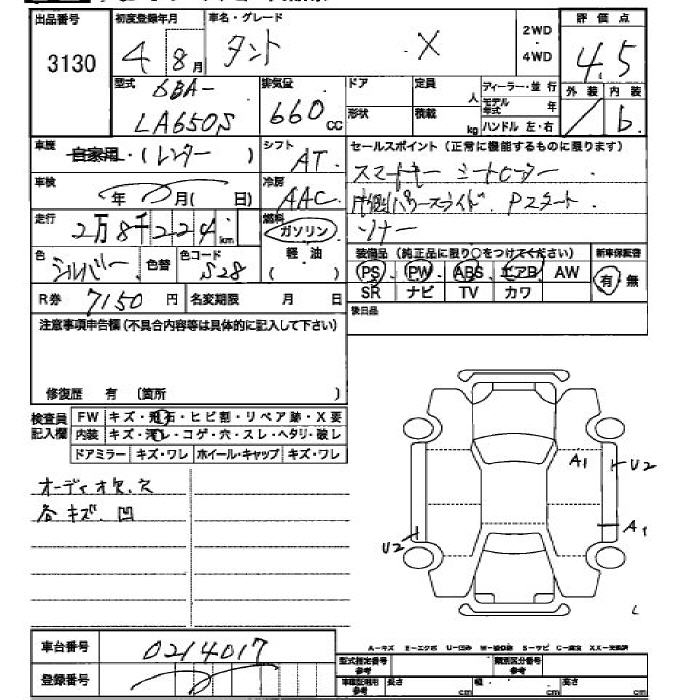 出品番号 初度登録年月 車名・グレード 2WD・4WD 評価点
3130 4 8月 タント X 4.5
型式 6BA- 排気量 ドア 定員 人 ディーラー・並行 外装 内装
LA650S 660cc 形状 積載 kg モデル年式 年 ハンドル 左・右 b
車歴 自家用・(レンター) シフト AT セールスポイント(正常に機能するものに限ります)
車検 年 月( 日) 冷房 AAC スマートキー シートヒーター
片側パワースライド Pスタート
走行 2万8千224km 燃料 ガソリン 軽油 ( ) ソナー
色 シルバー 色替 色コード S28 装備品(純正品に限り○をつけてください) 新車保証書
PS PW ABS エアB AW 有・無
R券 7150円 名変期限 月 日 SR ナビ TV カワ
注意事項申告欄(不具合内容等は具体的に記入して下さい) 後日品
修復歴 有 〔箇所 〕
検査員記入欄 FW キズ・飛石・ヒビ割・リペア跡・X要
内装 キズ・汚レ・コゲ・穴・スレ・ヘタリ・破レ
ドアミラー キズ・ワレ ホイール・キャップ キズ・ワレ
A1 U2
オーディオ欠.欠
各キズ.凹
A1
U2
L
車台番号 0214017
A-キズ E-エクボ U-凹み W-補修跡 S-サビ C-腐食 XX-交換済
登録番号 型式指定番号 参考 類別区分番号 参考
車検証用 参考 長さ cm 幅 cm 高さ cm